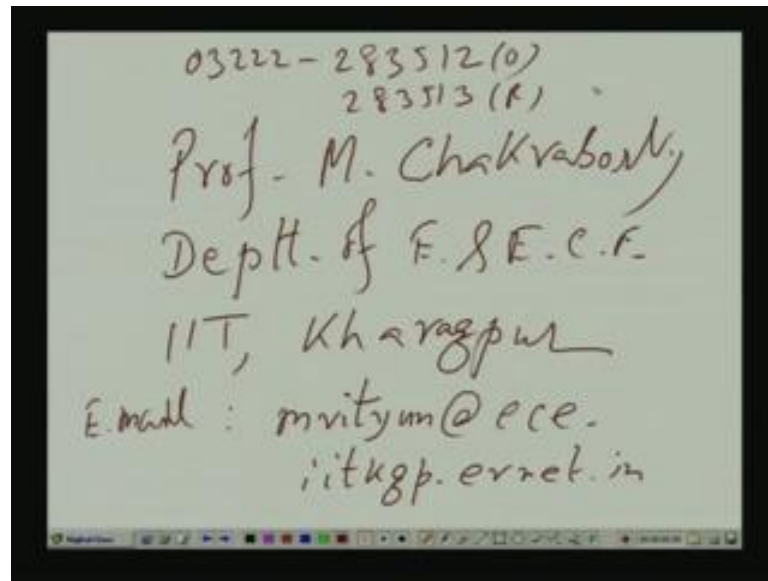 03222-283512(O)
283513(R)
Prof. M. Chakraborty
Deptt. of E. & E.C.E.
IIT, Kharagpur
E.mail : mrityun@ece.
iitkgp.ernet.in